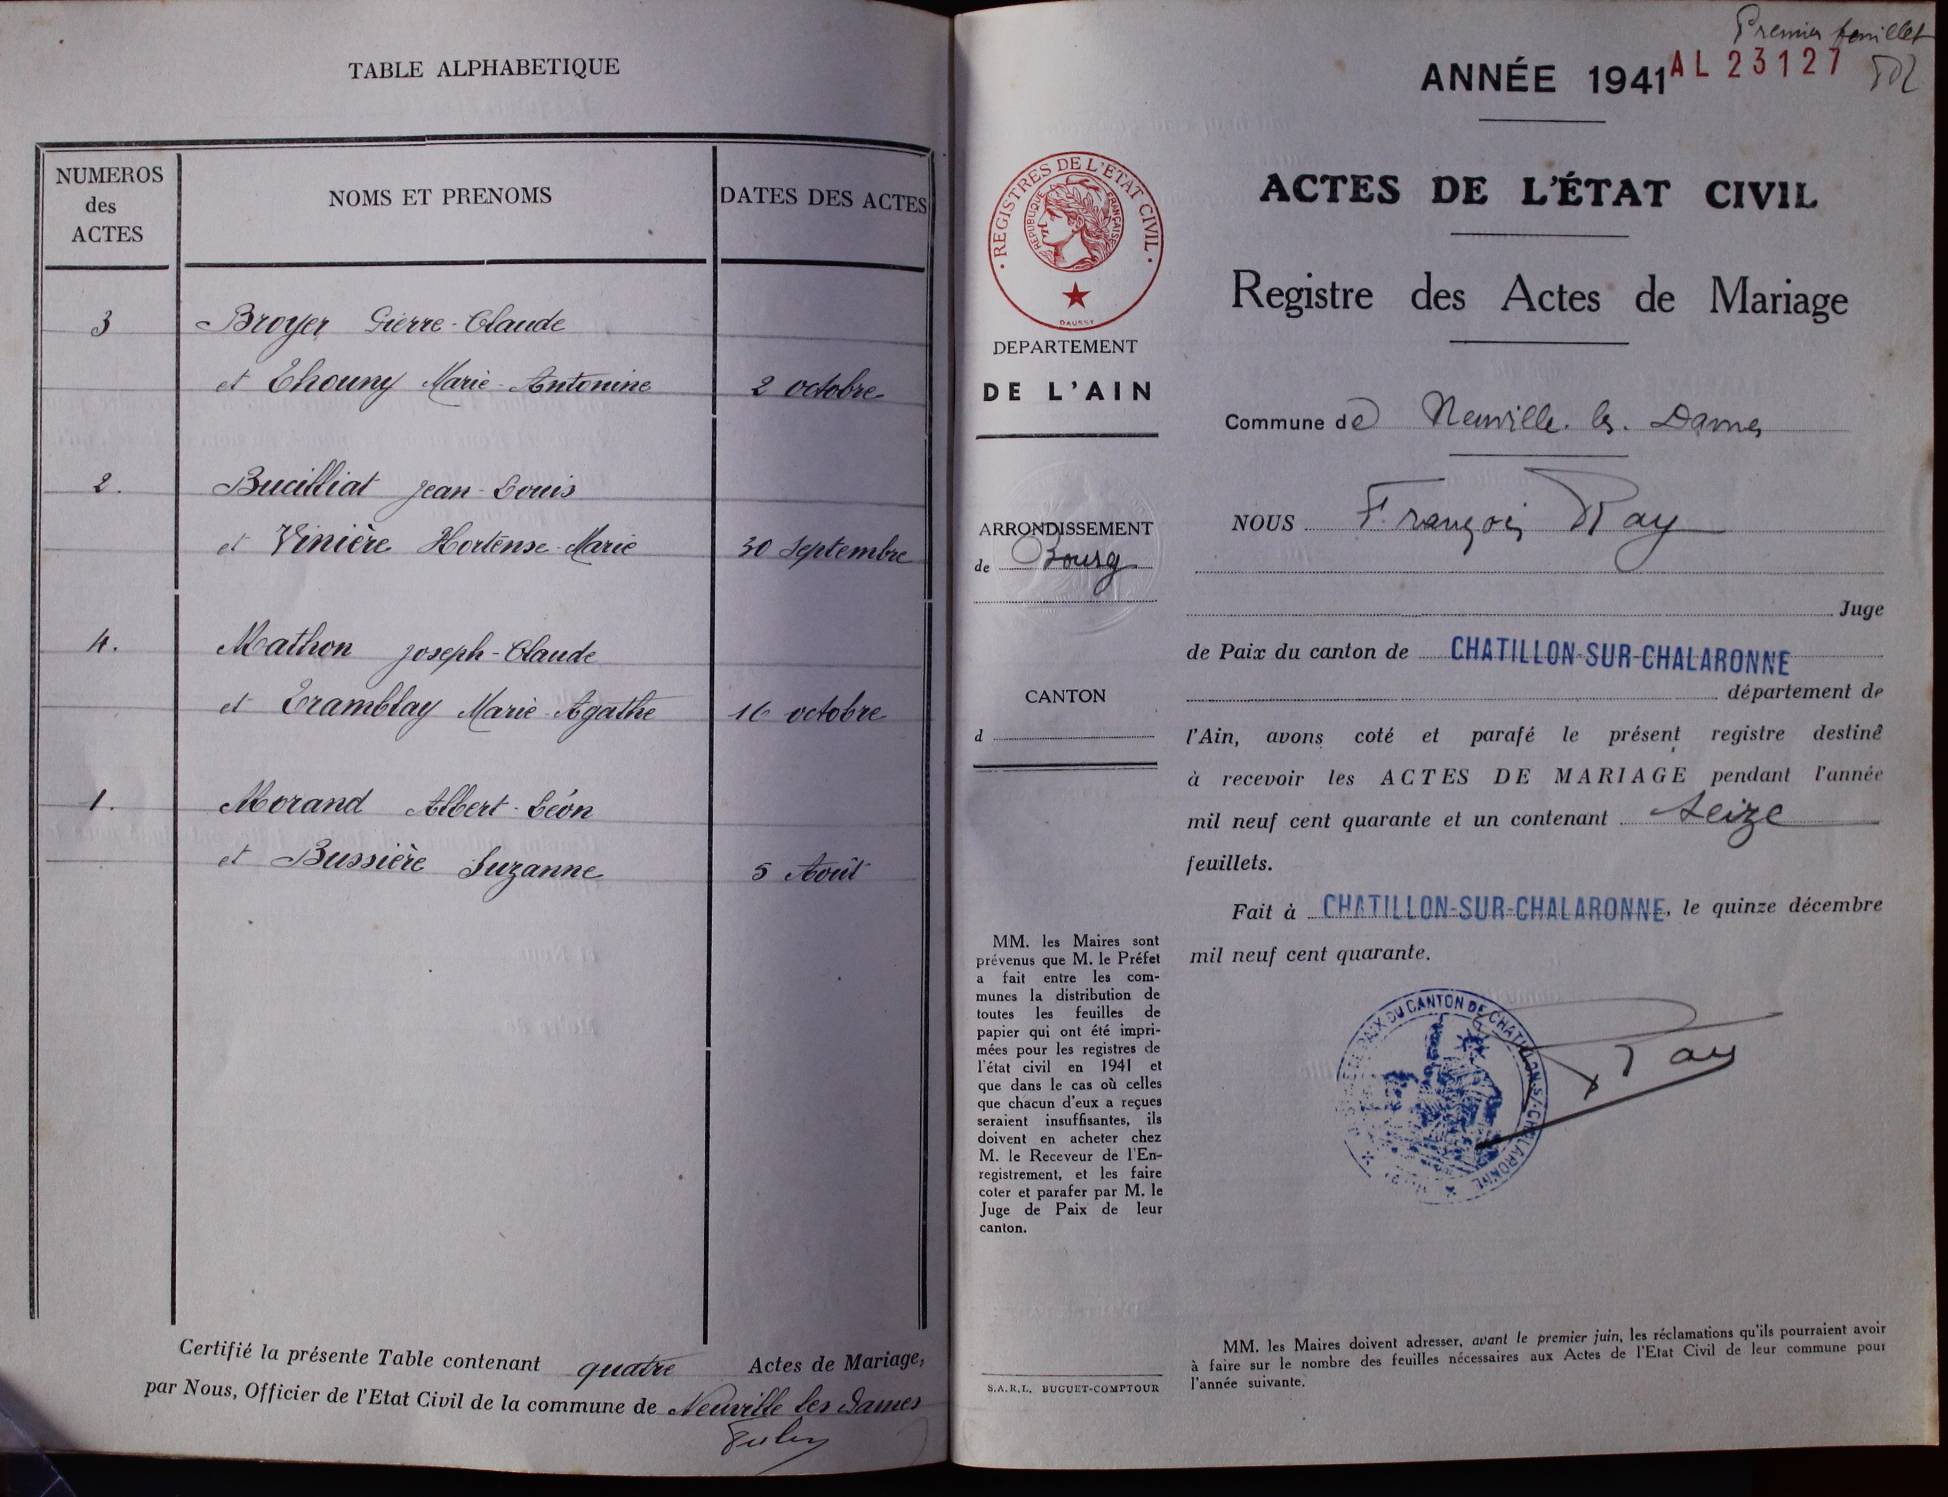 TABLE ALPHABETIQUE
NUMEROS
des
ACTES
NOMS ET PRENOMS
DATES DES ACTES
3 Broyer Pierre-Claude
et Thouny Marie-Antonine 2 octobre
2. Bucilliat Jean-Louis
et Vinière Hortense-Marie 30 Septembre
4. Mathon Joseph-Claude
et Tramblay Marie-Agathe 16 octobre
1. Morand Albert-Léon
et Bussière Suzanne 5 Août
Certifié la présente Table contenant quatre Actes de Mariage,
par Nous, Officier de l'Etat Civil de la commune de Neuville les Dames
Premier feuillet
ANNÉE 1941 AL 23127
ACTES DE L'ÉTAT CIVIL
Registre des Actes de Mariage
REGISTRES DE L'ETAT CIVIL
REPUBLIQUE FRANÇAISE
DAUSSY
DEPARTEMENT
DE L'AIN
ARRONDISSEMENT
de Bourg
CANTON
d
MM. les Maires sont
prévenus que M. le Préfet
a fait entre les com-
munes la distribution de
toutes les feuilles de
papier qui ont été impri-
mées pour les registres de
l'état civil en 1941 et
que dans le cas où celles
que chacun d'eux a reçues
seraient insuffisantes, ils
doivent en acheter chez
M. le Receveur de l'En-
registrement, et les faire
coter et parafer par M. le
Juge de Paix de leur
canton.
S.A.R.L. BUGUET-COMPTOUR
Commune de Neuville. les. Dames
NOUS François Ray
Juge
de Paix du canton de CHATILLON-SUR-CHALARONNE
département de
l'Ain, avons coté et parafé le présent registre destiné
à recevoir les ACTES DE MARIAGE pendant l'année
mil neuf cent quarante et un contenant seize
feuillets.
Fait à CHATILLON-SUR-CHALARONNE, le quinze décembre
mil neuf cent quarante.
PAIX DU CANTON DE CHATILLON-S/-CHALARONNE
Ray
MM. les Maires doivent adresser, avant le premier juin, les réclamations qu'ils pourraient avoir
à faire sur le nombre des feuilles nécessaires aux Actes de l'Etat Civil de leur commune pour
l'année suivante.